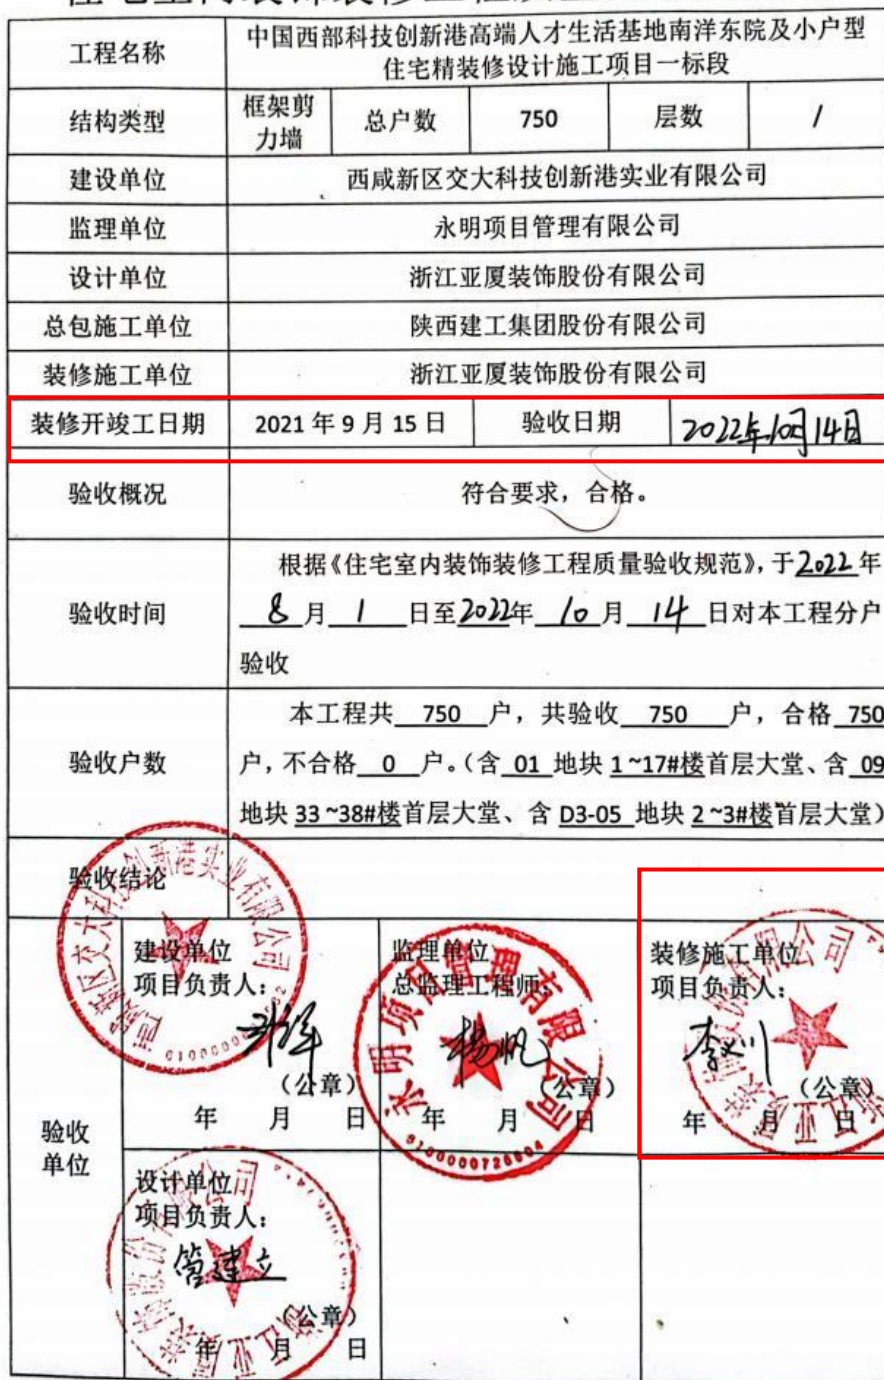 工程名称 中国西部科技创新港高端人才生活基地南洋东院及小户型
住宅精装修设计施工项目一标段
结构类型 框架剪力墙 总户数 750 层数 /
建设单位 西咸新区交大科技创新港实业有限公司
监理单位 永明项目管理有限公司
设计单位 浙江亚厦装饰股份有限公司
总包施工单位 陕西建工集团股份有限公司
装修施工单位 浙江亚厦装饰股份有限公司
装修开竣工日期 2021年9月15日 验收日期 2022年10月14日
验收概况 符合要求，合格。
验收时间
根据《住宅室内装饰装修工程质量验收规范》，于2022年
8月1日至2022年10月14日对本工程分户
验收
验收户数
本工程共 750 户，共验收 750 户，合格 750
户，不合格 0 户。（含 01 地块 1~17#楼首层大堂、含 09
地块 33~38#楼首层大堂、含 D3-05 地块 2~3#楼首层大堂）
验收结论
验收
单位
建设单位
项目负责人：
（公章）
年 月 日
监理单位
总监理工程师：
杨帆
（公章）
年 月 日
装修施工单位
项目负责人：
李义川
（公章）
年 月 日
设计单位
项目负责人：
管建立
（公章）
年 月 日
西咸新区交大科技创新港实业有限公司
永明项目管理有限公司
6100000726604